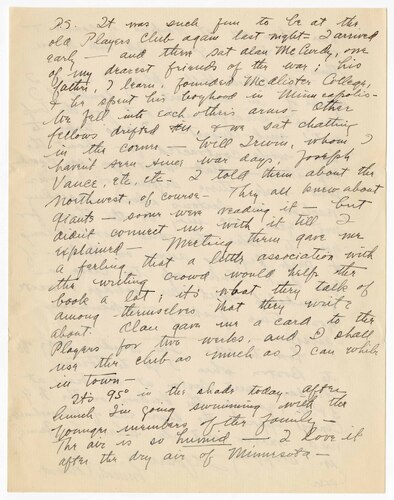 P.S. It was such fun to be at the
old Players Club again last night. I arrived
early — and there sat Alan McCurdy, one
of my dearest friends of the war; his
father, I learn, founded McAlister College,
& he spent his boyhood in Minneapolis —
We fell into each others arms — Other
fellows drifted in, & we sat chatting
in the corner — Will Irwin, whom I
haven't seen since war days, Joseph
Vance, etc, etc — I told them about the
Northwest, of course — They all knew about
Giants — some were reading it — but
didn't connect me with it till I
explained — Meeting them gave me
a feeling that a little association with
the writing crowd would help the
book a lot; it's what they talk of
among themselves that they write
about. Alan gave me a card to the
Players for two weeks and I shall
use the club as much as I can while
in town —
It's 95° in the shade today. After
lunch I'm going swimming with the
younger members of the family —
The air is so humid — I love it
after the dry air of Minnesota —